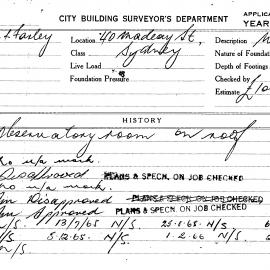 CITY BUILDING SURVEYOR'S DEPARTMENT APPLICA
YEAR
Farley Location 40 Macleay St, Description
Class Sydney Nature of Foundat
Live Load Depth of Footings
Foundation Pressure Checked by
Estimate £10
HISTORY
Observatory room on roof
no n/a mark.
Disapproved PLANS & SPECN. ON JOB CHECKED
no n/a mark.
Disapproved PLANS & SPECN. ON JOB CHECKED
Approved PLANS & SPECN. ON JOB CHECKED
13/7/65 N/S. 25-1-65 N/S. 6
5.12.65 N/S 1.2.66 N/S. 6
N/S